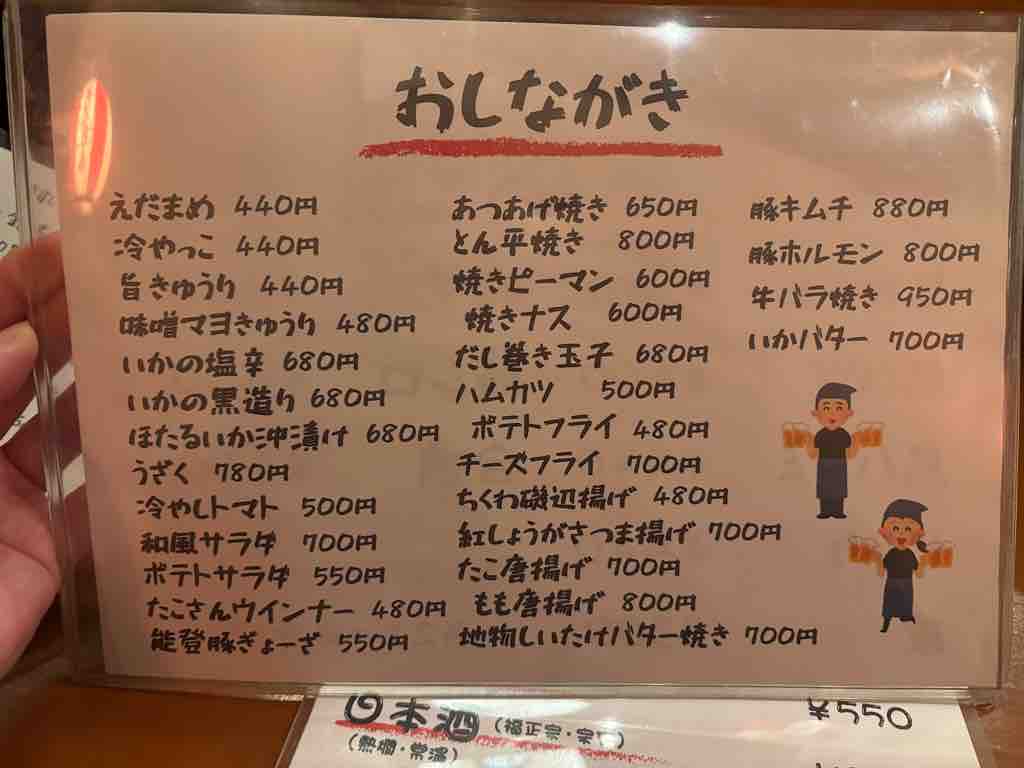 おしながき
えだまめ 440円
冷やっこ 440円
旨きゅうり 440円
味噌マヨきゅうり 480円
いかの塩辛 680円
いかの黒造り 680円
ほたるいか沖漬け 680円
うざく 780円
冷やしトマト 500円
和風サラダ 700円
ポテトサラダ 550円
たこさんウインナー 480円
能登豚ぎょーざ 550円
あつあげ焼き 650円
とん平焼き 800円
焼きピーマン 600円
焼きナス 600円
だし巻き玉子 680円
ハムカツ 500円
ポテトフライ 480円
チーズフライ 700円
ちくわ磯辺揚げ 480円
紅しょうがさつま揚げ 700円
たこ唐揚げ 700円
もも唐揚げ 800円
地物しいたけバター焼き 700円
豚キムチ 880円
豚ホルモン 800円
牛バラ焼き 950円
いかバター 700円
日本酒 (福正宗・宗) ¥550
(熱燗・常温)